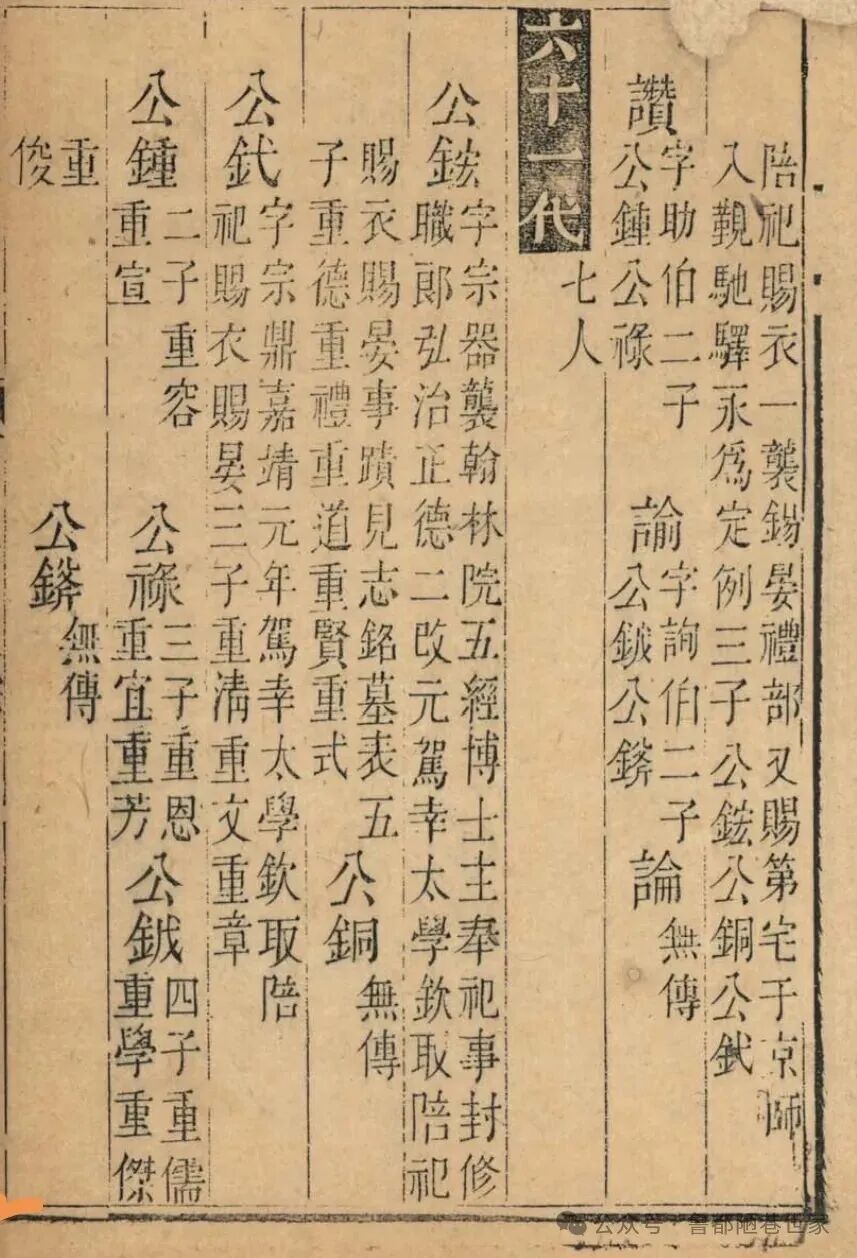 陪祀賜衣一襲錫晏禮部又賜第宅于京師
入覲馳驛永爲定例三子公鋐公銅公鉽
讚 字助伯二子 公鍾公祿
諭 字詢伯二子 公鉞公鏘
論 無傳
六十一代 七人
公鋐 字宗器襲翰林院五經博士主奉祀事封修
職郎弘治正德二改元駕幸太學欽取陪祀
賜衣賜晏事蹟見志銘墓表五
子重德重禮重道重賢重式
公銅 無傳
公鉽 字宗鼎嘉靖元年駕幸太學欽取陪
祀賜衣賜晏三子重清重文重章
公鍾 二子重容 重宣
公祿 三子重恩 重宜重芳
公鉞 四子重儒 重學重傑
重俊
公鏘 無傳
公众号·魯都陋巷世家